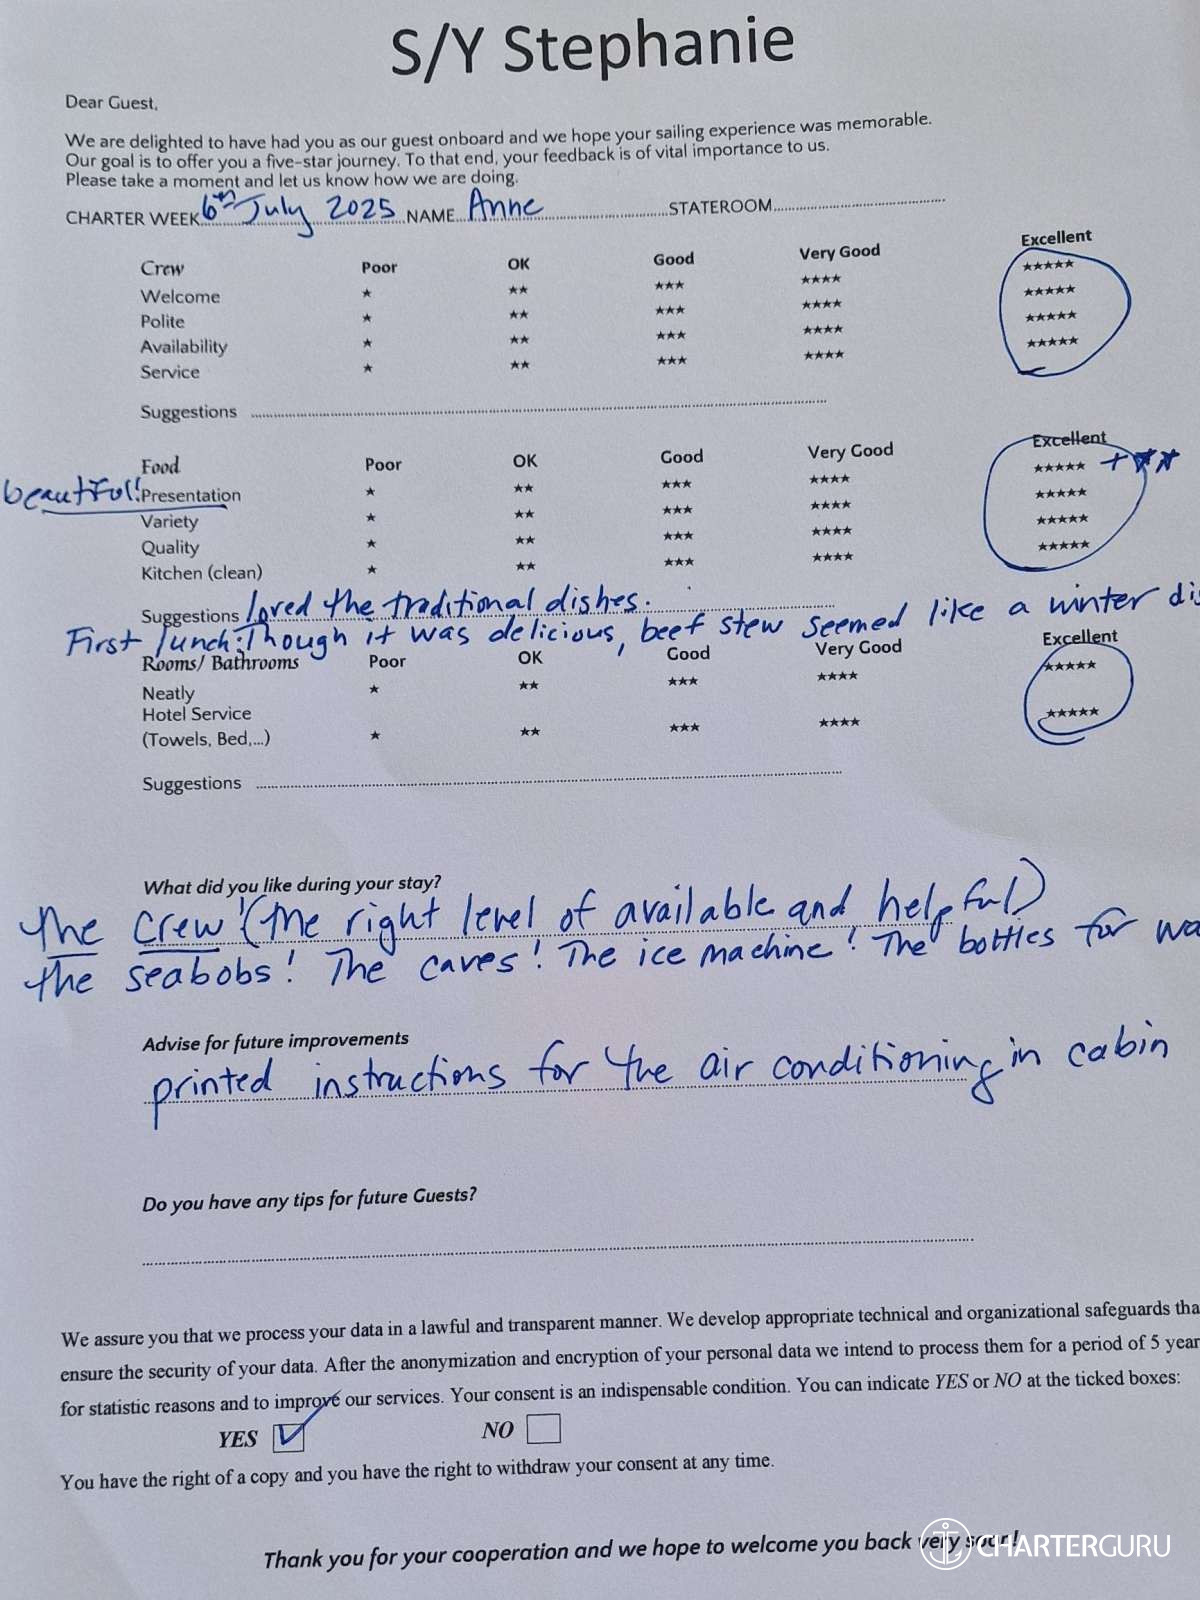 S/Y Stephanie
Dear Guest,
We are delighted to have had you as our guest onboard and we hope your sailing experience was memorable.
Our goal is to offer you a five-star journey. To that end, your feedback is of vital importance to us.
Please take a moment and let us know how we are doing.
CHARTER WEEK 6th July 2025 NAME Anne STATEROOM
Crew Poor OK Good Very Good Excellent
Welcome ★ ★★ ★★★ ★★★★ ★★★★★
Polite ★ ★★ ★★★ ★★★★ ★★★★★
Availability ★ ★★ ★★★ ★★★★ ★★★★★
Service ★ ★★ ★★★ ★★★★ ★★★★★
Suggestions
Food Poor OK Good Very Good Excellent
beautiful! Presentation ★ ★★ ★★★ ★★★★ ★★★★★ + ★★
Variety ★ ★★ ★★★ ★★★★ ★★★★★
Quality ★ ★★ ★★★ ★★★★ ★★★★★
Kitchen (clean) ★ ★★ ★★★ ★★★★ ★★★★★
Suggestions loved the traditional dishes.
First lunch: Though it was delicious, beef stew seemed like a winter dis
Rooms/ Bathrooms Poor OK Good Very Good Excellent
Neatly ★ ★★ ★★★ ★★★★ ★★★★★
Hotel Service
(Towels, Bed,...) ★ ★★ ★★★ ★★★★ ★★★★★
Suggestions
What did you like during your stay?
The crew! (the right level of available and helpful)
the seabobs! The caves! The ice machine! The bottles for wa
Advise for future improvements
printed instructions for the air conditioning in cabin
Do you have any tips for future Guests?
We assure you that we process your data in a lawful and transparent manner. We develop appropriate technical and organizational safeguards tha
ensure the security of your data. After the anonymization and encryption of your personal data we intend to process them for a period of 5 year
for statistic reasons and to improve our services. Your consent is an indispensable condition. You can indicate YES or NO at the ticked boxes:
YES NO
You have the right of a copy and you have the right to withdraw your consent at any time.
Thank you for your cooperation and we hope to welcome you back very soon!
CHARTERGURU